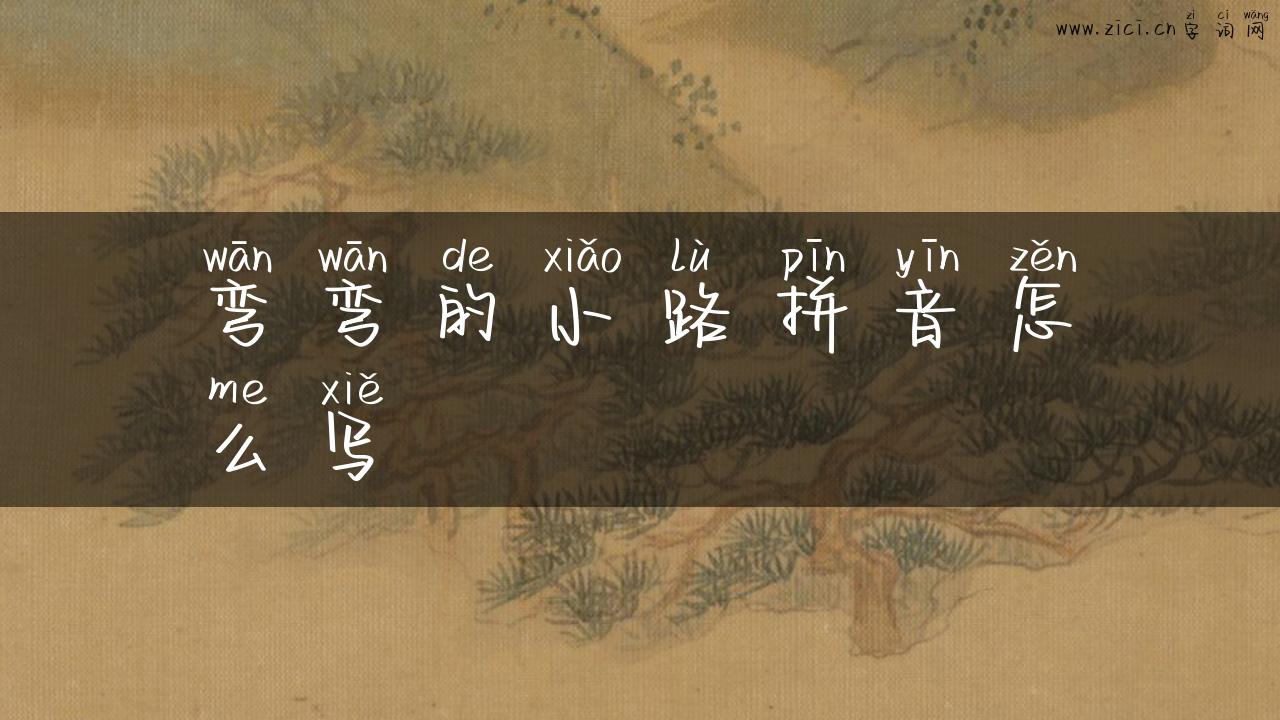 zì cí wǎng
www.zici.cn 字词网
wān wān de xiǎo lù pīn yīn zěn
弯弯的小路拼音怎
me xiě
么写